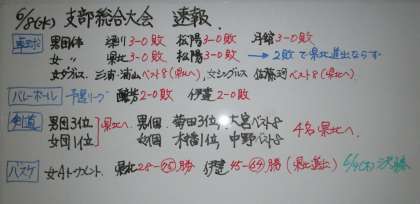 6/8(水) 支部総合大会 速報
卓球 男団体 深川3-0敗 松陽3-0敗 月館3-0敗
女〃 県北3-0敗 松陽3-0敗 → 2敗で県北進出ならず
女ダブルス 三浦・浦山ベスト8(県北へ)、女シングルス 佐藤 ベスト8(県北へ)
バレーボール 予選リーグ 醸芳2-0敗 伊達2-0敗
剣道 男団3位 女団1位 県北へ 男個 菊田3位、大宮ベスト8 4名県北へ
女個 本橋1位 中野ベスト8
バスケ 女Aトーナメント 県北28-75勝 伊達45-64勝(県北進出) 6/9(木)決勝